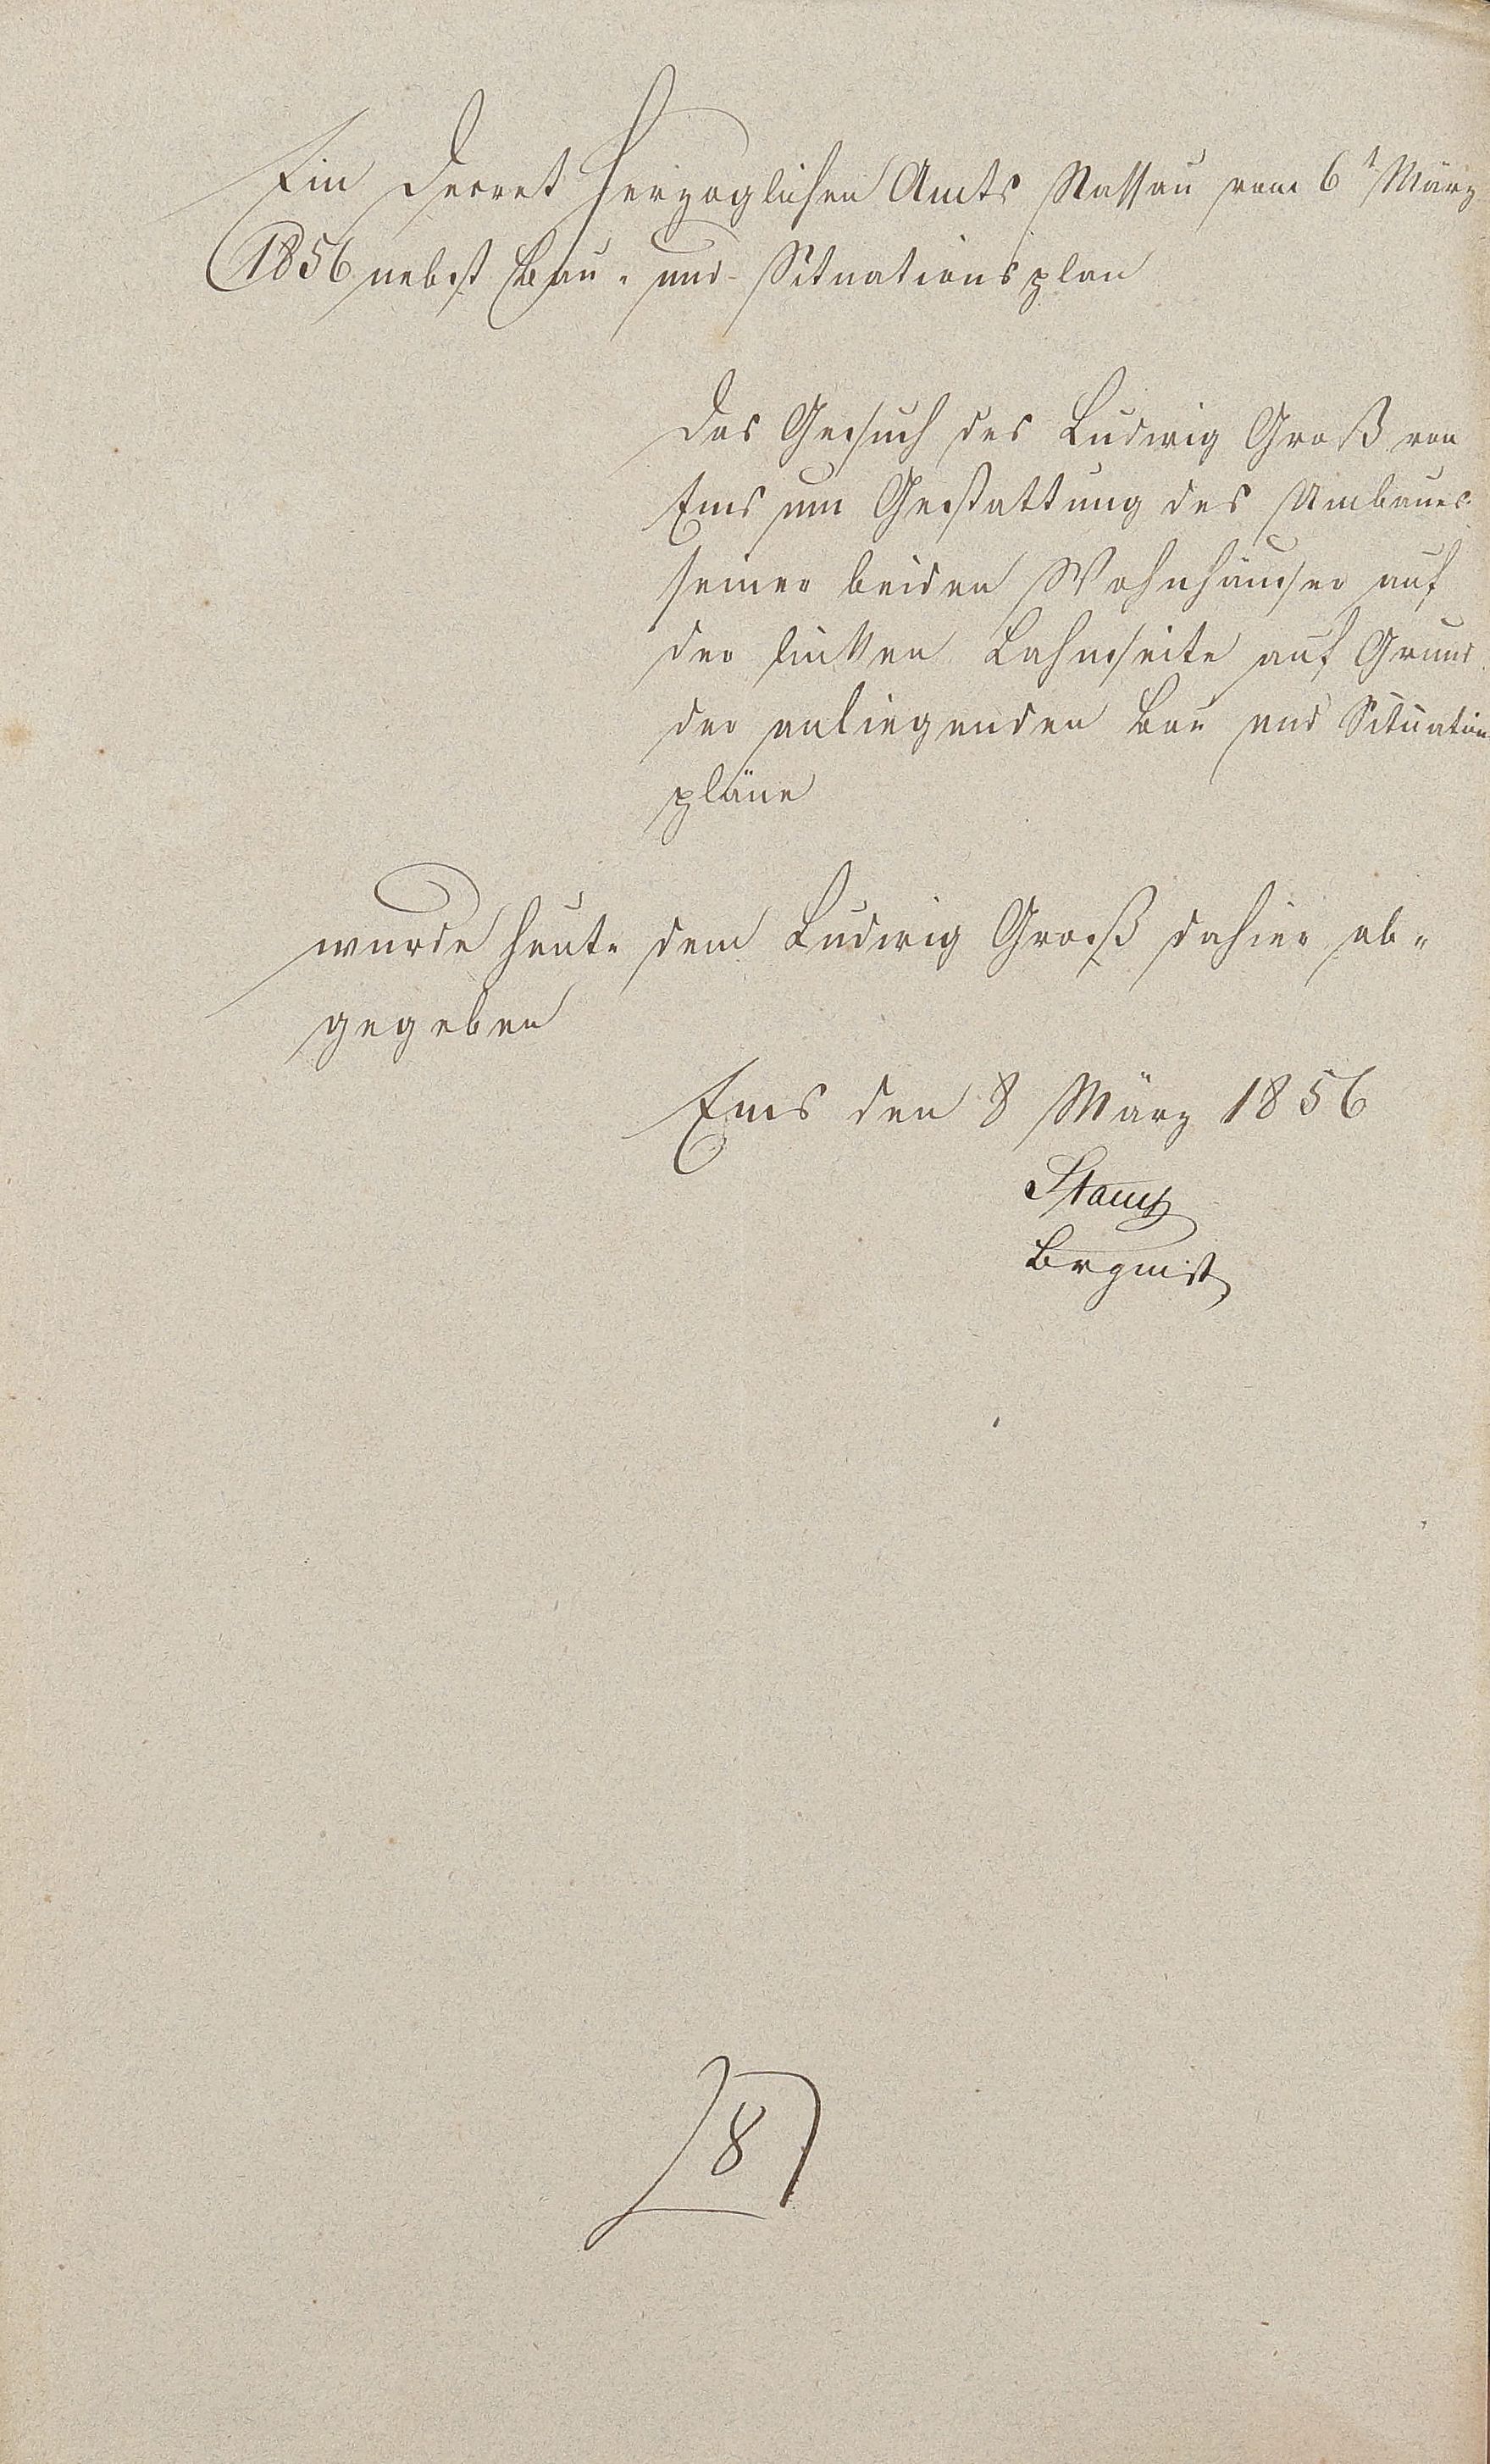 Ein Decret Herzoglichen Amts Nassau vom 6t März
1856 nebst Bau- und Situationsplan
Das Gesuch des Ludwig Groß von
Ems um Gestattung des Umbaues
seiner beiden Wohnhäuser auf
der linken Lahnseite auf Grund
der anliegenden Bau und Situation
pläne
wurde heute dem Ludwig Groß dahier ab-
gegeben
Ems den 8 März 1856
Brgmst
8